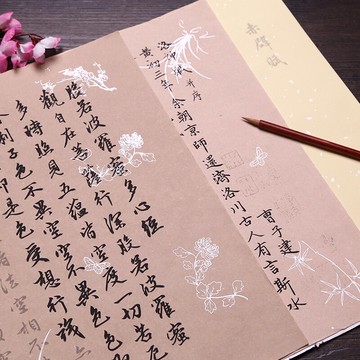 赤壁賦
洛神賦 并序
曹子建
黄初三年余朝京師還濟洛川古人有言斯水
般若波羅蜜多心經
觀自在菩薩行深般若波羅蜜
多時照見五蘊皆空度一切苦厄
利子色不異空空不異色色
即是色受想行識
法空相